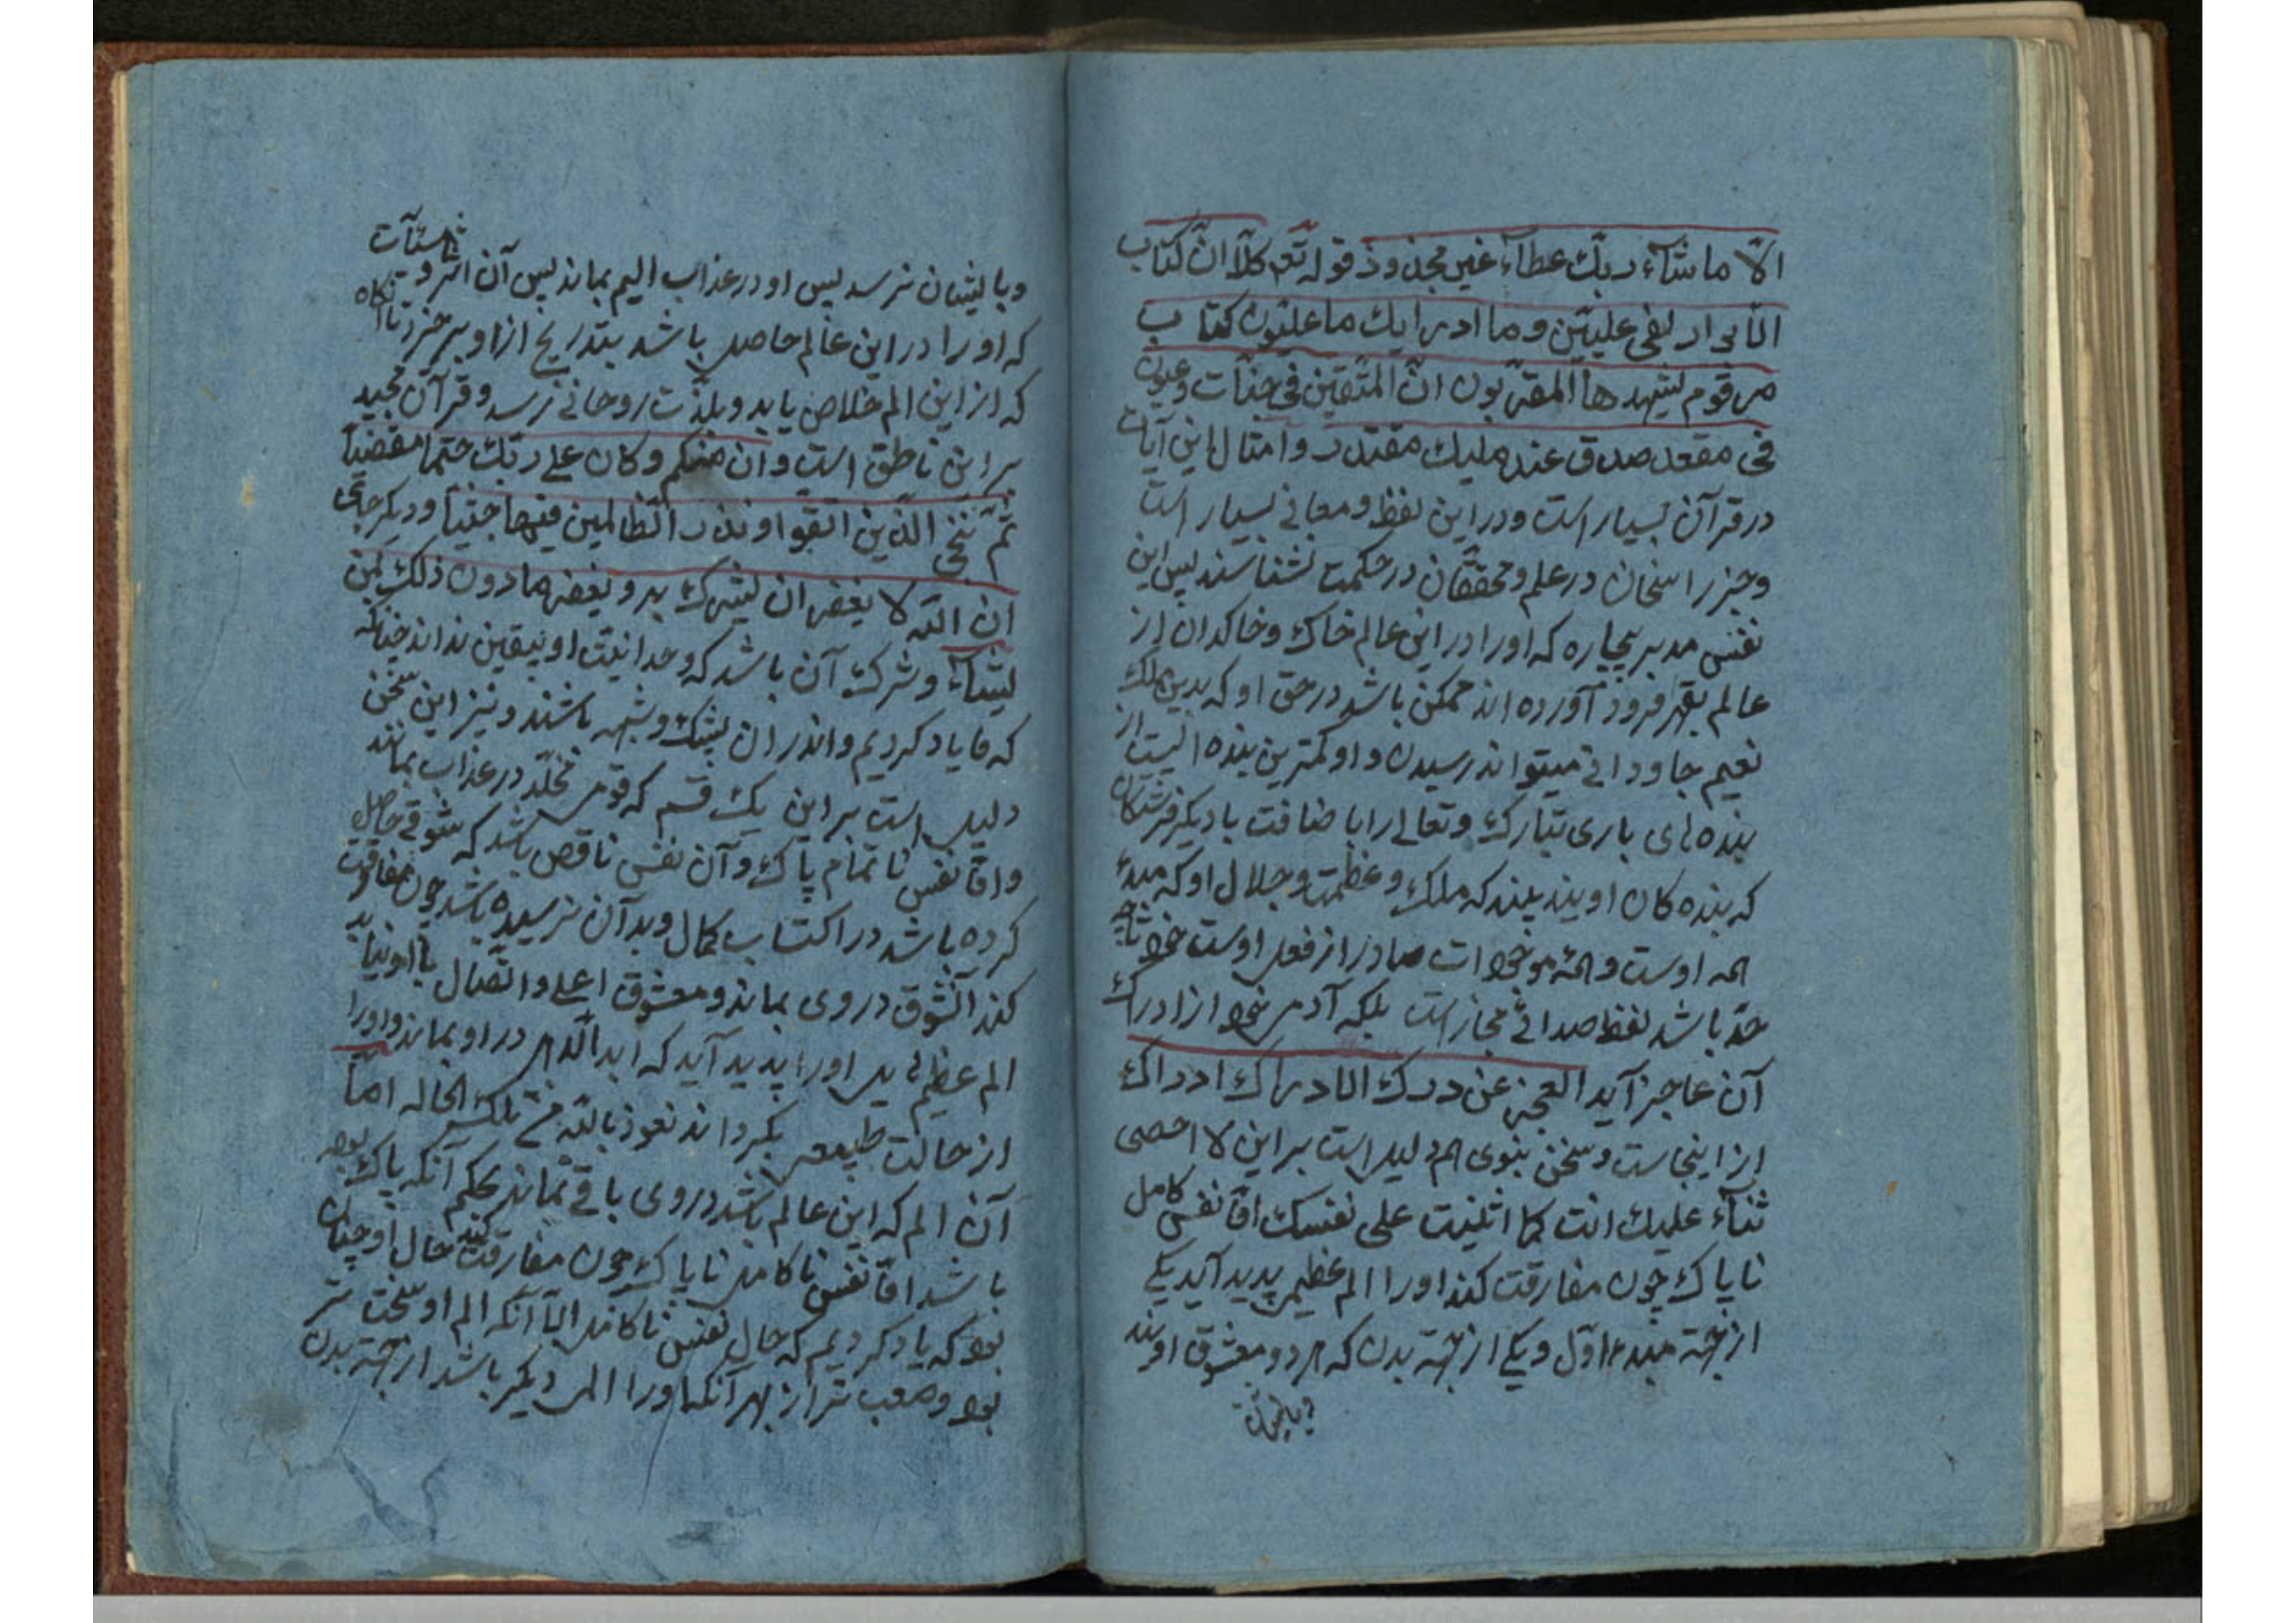 الّا ما شآء ربك عطآء غير مجذوذ قوله تع كلّا انّ كتاب
الابرار لفى عليّين وما ادريك ما علّيّون كتاب
مرقوم يشهدها المقرّبون انّ المتّقين فى جنّات وعيون
فى مقعد صدق عند مليك مقتدر و امثال اين آيات
در قرآن بسيار است و در اين لفظ و معانى بسيار است
و جز راسخان در علم و محققّان در حكمت نشناسند پس اين
نفس مدبر بيچاره كه او را در اين عالم خاك و خاكدان از
عالم بقهر فرود آورده اند ممكن باشد در حق او كه بدين ملك
نعيم جاودانى ميتواند رسيدن و او كمترين بنده ايست از
بنده هاى بارى تبارك و تعالى را باضافت با ديگر فرشتگان
كه بنده كان اويند كه ملك و عظمت و جلال او كه مبدء
همه اوست و همه موجودات صادر از فعل اوست خود
حدّ باشد لفظ صدائى مجاز است بلكه آدمى خود از ادراك
آن عاجز آيد العجز عن درك الادراك ادراك
از اينجاست و سخن نبوى هم دليل است بر اين لا احصى
ثنآء عليك انت كما اثنيت على نفسك امّا نفس كامل
ناپاك چون مفارقت كند او را الم عظيم پديد آيد يكى
از جهة مبدء اوّل و يكى از جهة بدن كه هر دو معشوق اويند
و بايشان
و بايشان نرسد پس او در عذاب اليم بماند پس آن اثر و
كه او را در اين عالم حاصل باشد بتدريج از او برخيزد تا آنگاه
كه از اين الم خلاص يابد و بلذّت روحانى رسد و قرآن مجيد
بر اين ناطق است و ان منكم و كان على ربّك حتما مقضيّا
ثمّ ننجّى الّذين اتّقوا و نذر الظالمين فيها جثيّا و ديگر جاى
انّ اللّه لا يغفر ان يشرك به و يغفر ما دون ذلك لمن
يشآء و شرك آن باشد كه وحدانيّت او بيقين نداند چنانكه
كه ما ياد كرديم و اندر ان بشك و شبهه باشند و نيز اين سخن
دليل است بر اين يك قسم كه قومى مخلّد در عذاب بمانند
و امّا نفس ناتمام پاك و آن نفس ناقص باشد كه شوقى حاصل
كرده باشد در اكتساب كمال و بدآن نرسيده باشد چون مفارقت
كند آنشوق در وى بماند و معشوق اعلى و اتّصال با او نيابد
الم عظيم هايل او را پديد آيد كه ابد الدّهر در او بماند و او را
از حالت طبيعى بگرداند نعوذ باللّه من تلك الحاله امّا
آن الم كه اين عالم باشد در وى باقى نماند بحكم آنكه پاك بود
باشد امّا نفس ناكامل ناپاك چون مفارقت كند حال او چنان
بود كه ياد كرديم كه حال نفس ناكامل الّا آنكه الم او سخت تر
بود و صعب تر از بهر آنكه او را المى ديگر باشد از جهة بدن